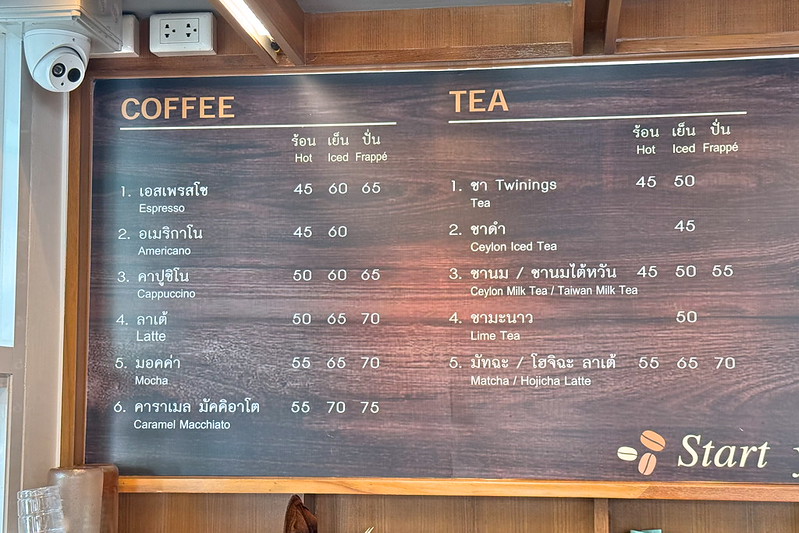 COFFEE
ร้อน เย็น ปั่น
Hot Iced Frappé
1. เอสเพรสโซ 45 60 65
Espresso
2. อเมริกาโน 45 60
Americano
3. คาปูชิโน 50 60 65
Cappuccino
4. ลาเต้ 50 65 70
Latte
5. มอคค่า 55 65 70
Mocha
6. คาราเมล มัคคิอาโต 55 70 75
Caramel Macchiato
TEA
ร้อน เย็น ปั่น
Hot Iced Frappé
1. ชา Twinings 45 50
Tea
2. ชาดำ 45
Ceylon Iced Tea
3. ชานม / ชานมไต้หวัน 45 50 55
Ceylon Milk Tea / Taiwan Milk Tea
4. ชามะนาว 50
Lime Tea
5. มัทฉะ / โฮจิฉะ ลาเต้ 55 65 70
Matcha / Hojicha Latte
Start